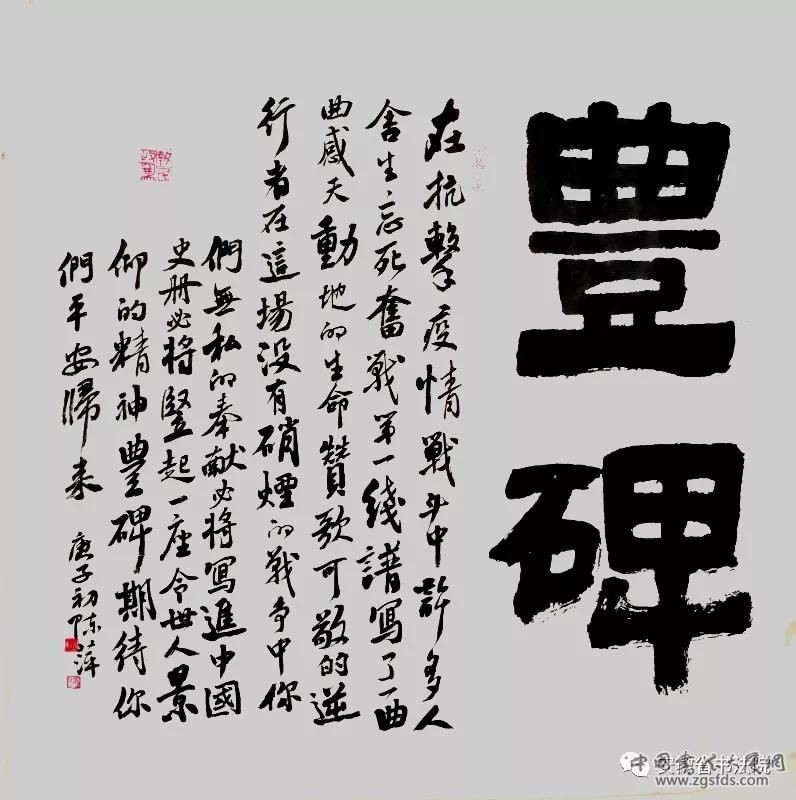 豊碑
在抗擊疫情戰斗中許多人
舍生忘死奮戰第一线譜寫了一曲
曲感天動地的生命贊歌可敬的逆
行者在這場没有硝煙的戰争中你
們無私的奉献必将寫進中國
史册必将竪起一座令世人景
仰的精神豊碑期待你
們平安歸来
庚子初陈萍
安徽省书法院
www.zgsfds.com